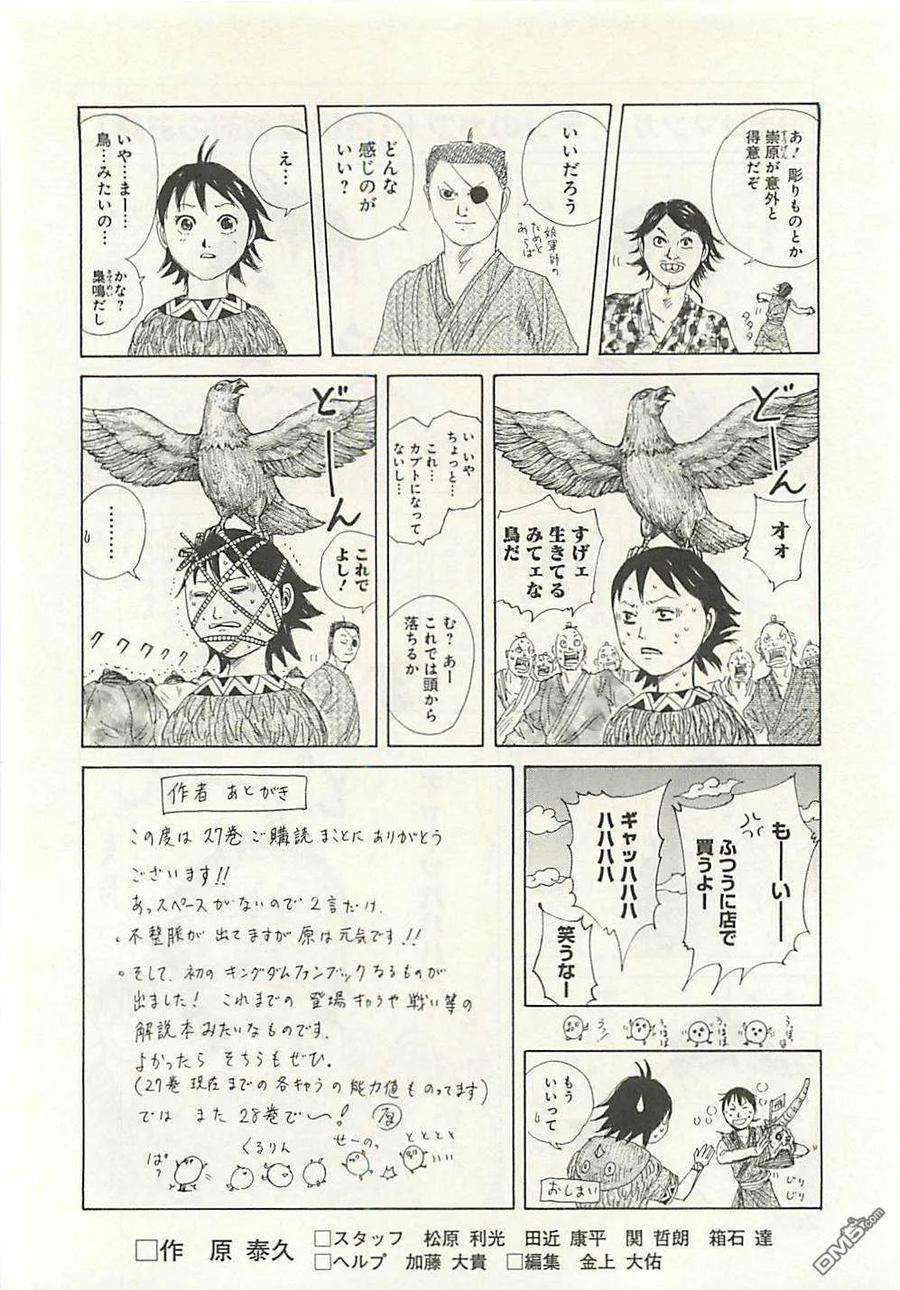 あ！彫りものとか
崇原が意外と
得意だぞ
いいだろう
どんな
感じのが
いい？
え…
いや…まー…
鳥…みたいの…
かな？
梟鳴だし
どーん
オォ
すげェ
生きてる
みてェな
鳥だ
い いや
ちょっと…
これ…
カブトになって
ないし…
む？ あー
これでは頭から
落ちるか
どーん
これで
よし！
…………
クククッ
もーいー
ふつうに店で
買うよー
ギャッハハハ
ハハハハ
笑うなー
もう
いいって
じりじり
おしまい
作者 あとがき
この度は 27巻 ご購読 まことに ありがとう
ございます!!
あっスペースがないので 2言だけ.
。不整脈が 出てますが 原は元気です!!
。そして、初の キングダムファンブックなるものが
出ました！ これまでの 登場キャラや 戦い等の
解説本みたいなものです.
よかったら そちらもぜひ.
(27巻 現在までの各キャラの能力値ものってます)
では また 28巻で〜！
ぱ？
くるりん
せーのっ
とととと
□作 原 泰久
□スタッフ 松原 利光 田近 康平 関 哲朗 箱石 達
□ヘルプ 加藤 大貴 □編集 金上 大佑
DM5.com